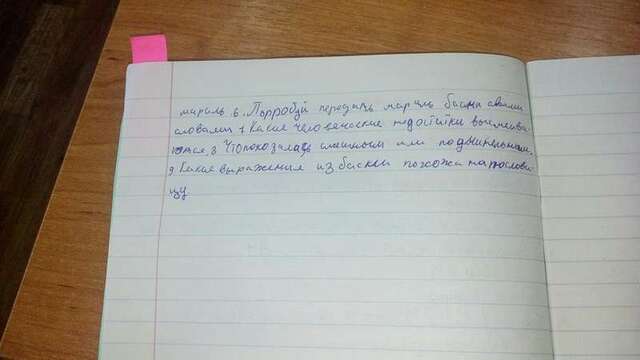 мароль 6. Попробуй передать мароль басни своими
словами 7 Какие человеческие недостатки высмеива
ются, 8 Что показалась смешным или поджинельным,
9 Какие выражения из басни похожа на послови
цу